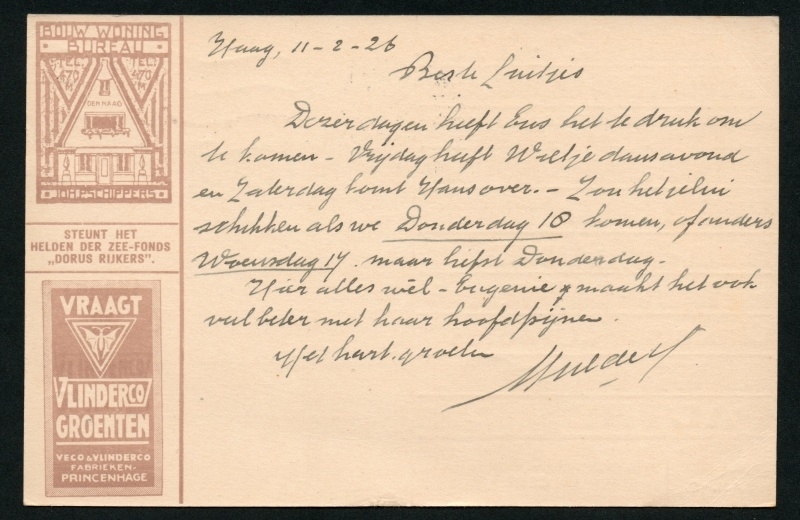 BOUW WONING
BUREAU
TEL. 470 TEL. 470
DEN HAAG
JOH.P.SCHIPPERS
STEUNT HET
HELDEN DER ZEE-FONDS
„DORUS RIJKERS”.
VRAAGT
VLINDERCO
GROENTEN
VECO & VLINDERCO
FABRIEKEN-
PRINCENHAGE
Haag, 11-2-26
Beste Luitjes
Dezer dagen heeft Eus het te druk om
te komen - Vrijdag heeft Wieltje dansavond
en Zaterdag komt Hans over. - Zou het jelui
schikken als we Donderdag 18 komen, of anders
Woensdag 17. maar liefst Donderdag.
Hier alles wèl - Eugenie maakt het ook
veel beter met haar hoofdpijnen.
Met hart. groeten